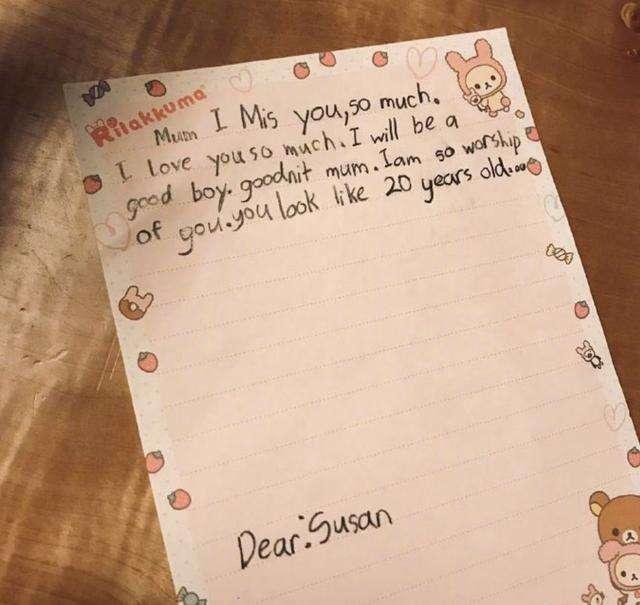 Rilakkuma
Mum I Mis you,so much.
I Love you so much.I will be a
good boy.goodnit mum.I am so worship
of you.you look like 20 years old...
Dear:Susan